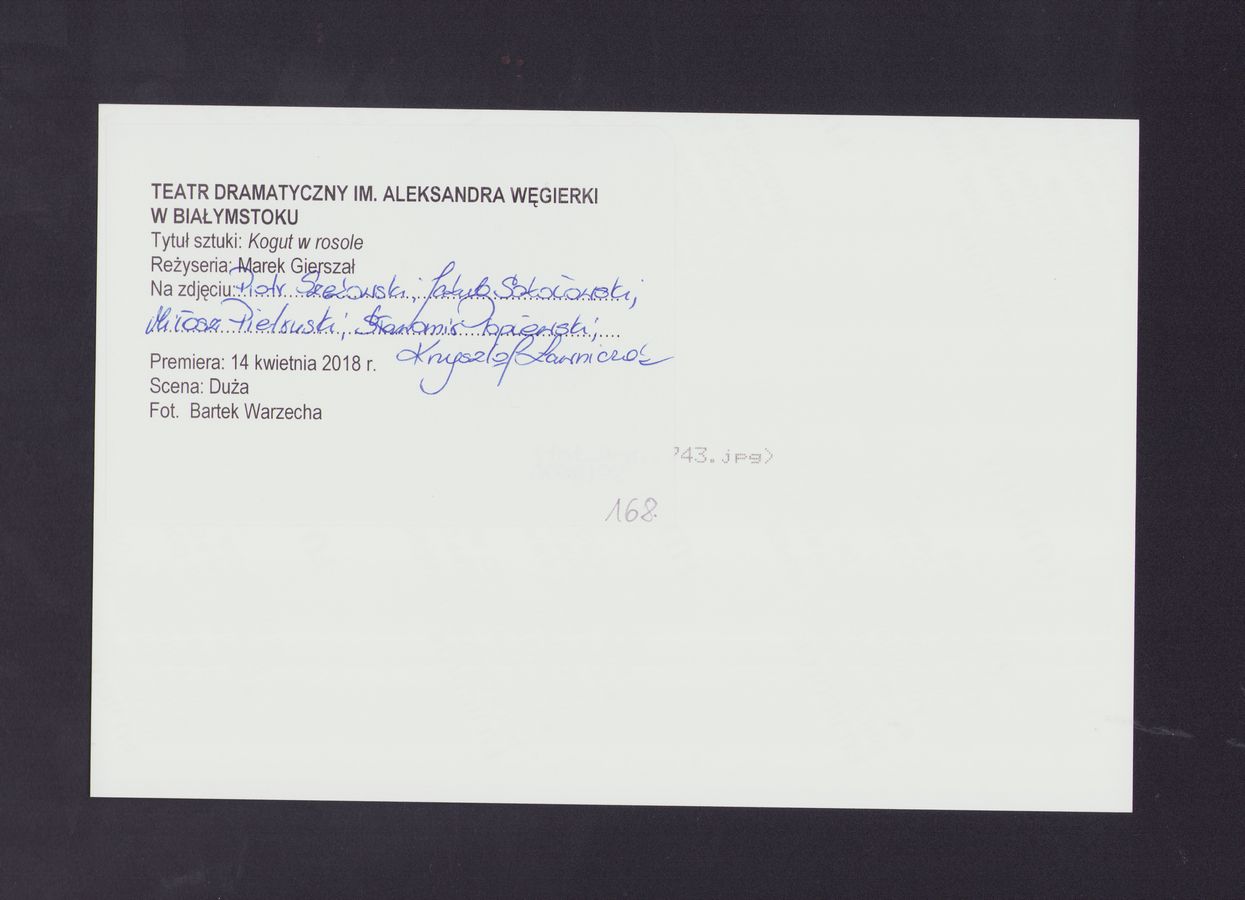 TEATR DRAMATYCZNY IM. ALEKSANDRA WĘGIERKI
W BIAŁYMSTOKU
Tytuł sztuki: Kogut w rosole
Reżyseria: Marek Gierszał
Na zdjęciu: Piotr Szekowski, Jakub Sokołowski,
Miłosz Pietruski, Sławomir Popławski,
Krysztof Ławniczak
Premiera: 14 kwietnia 2018 r.
Scena: Duża
Fot. Bartek Warzecha
743.jpg>
168